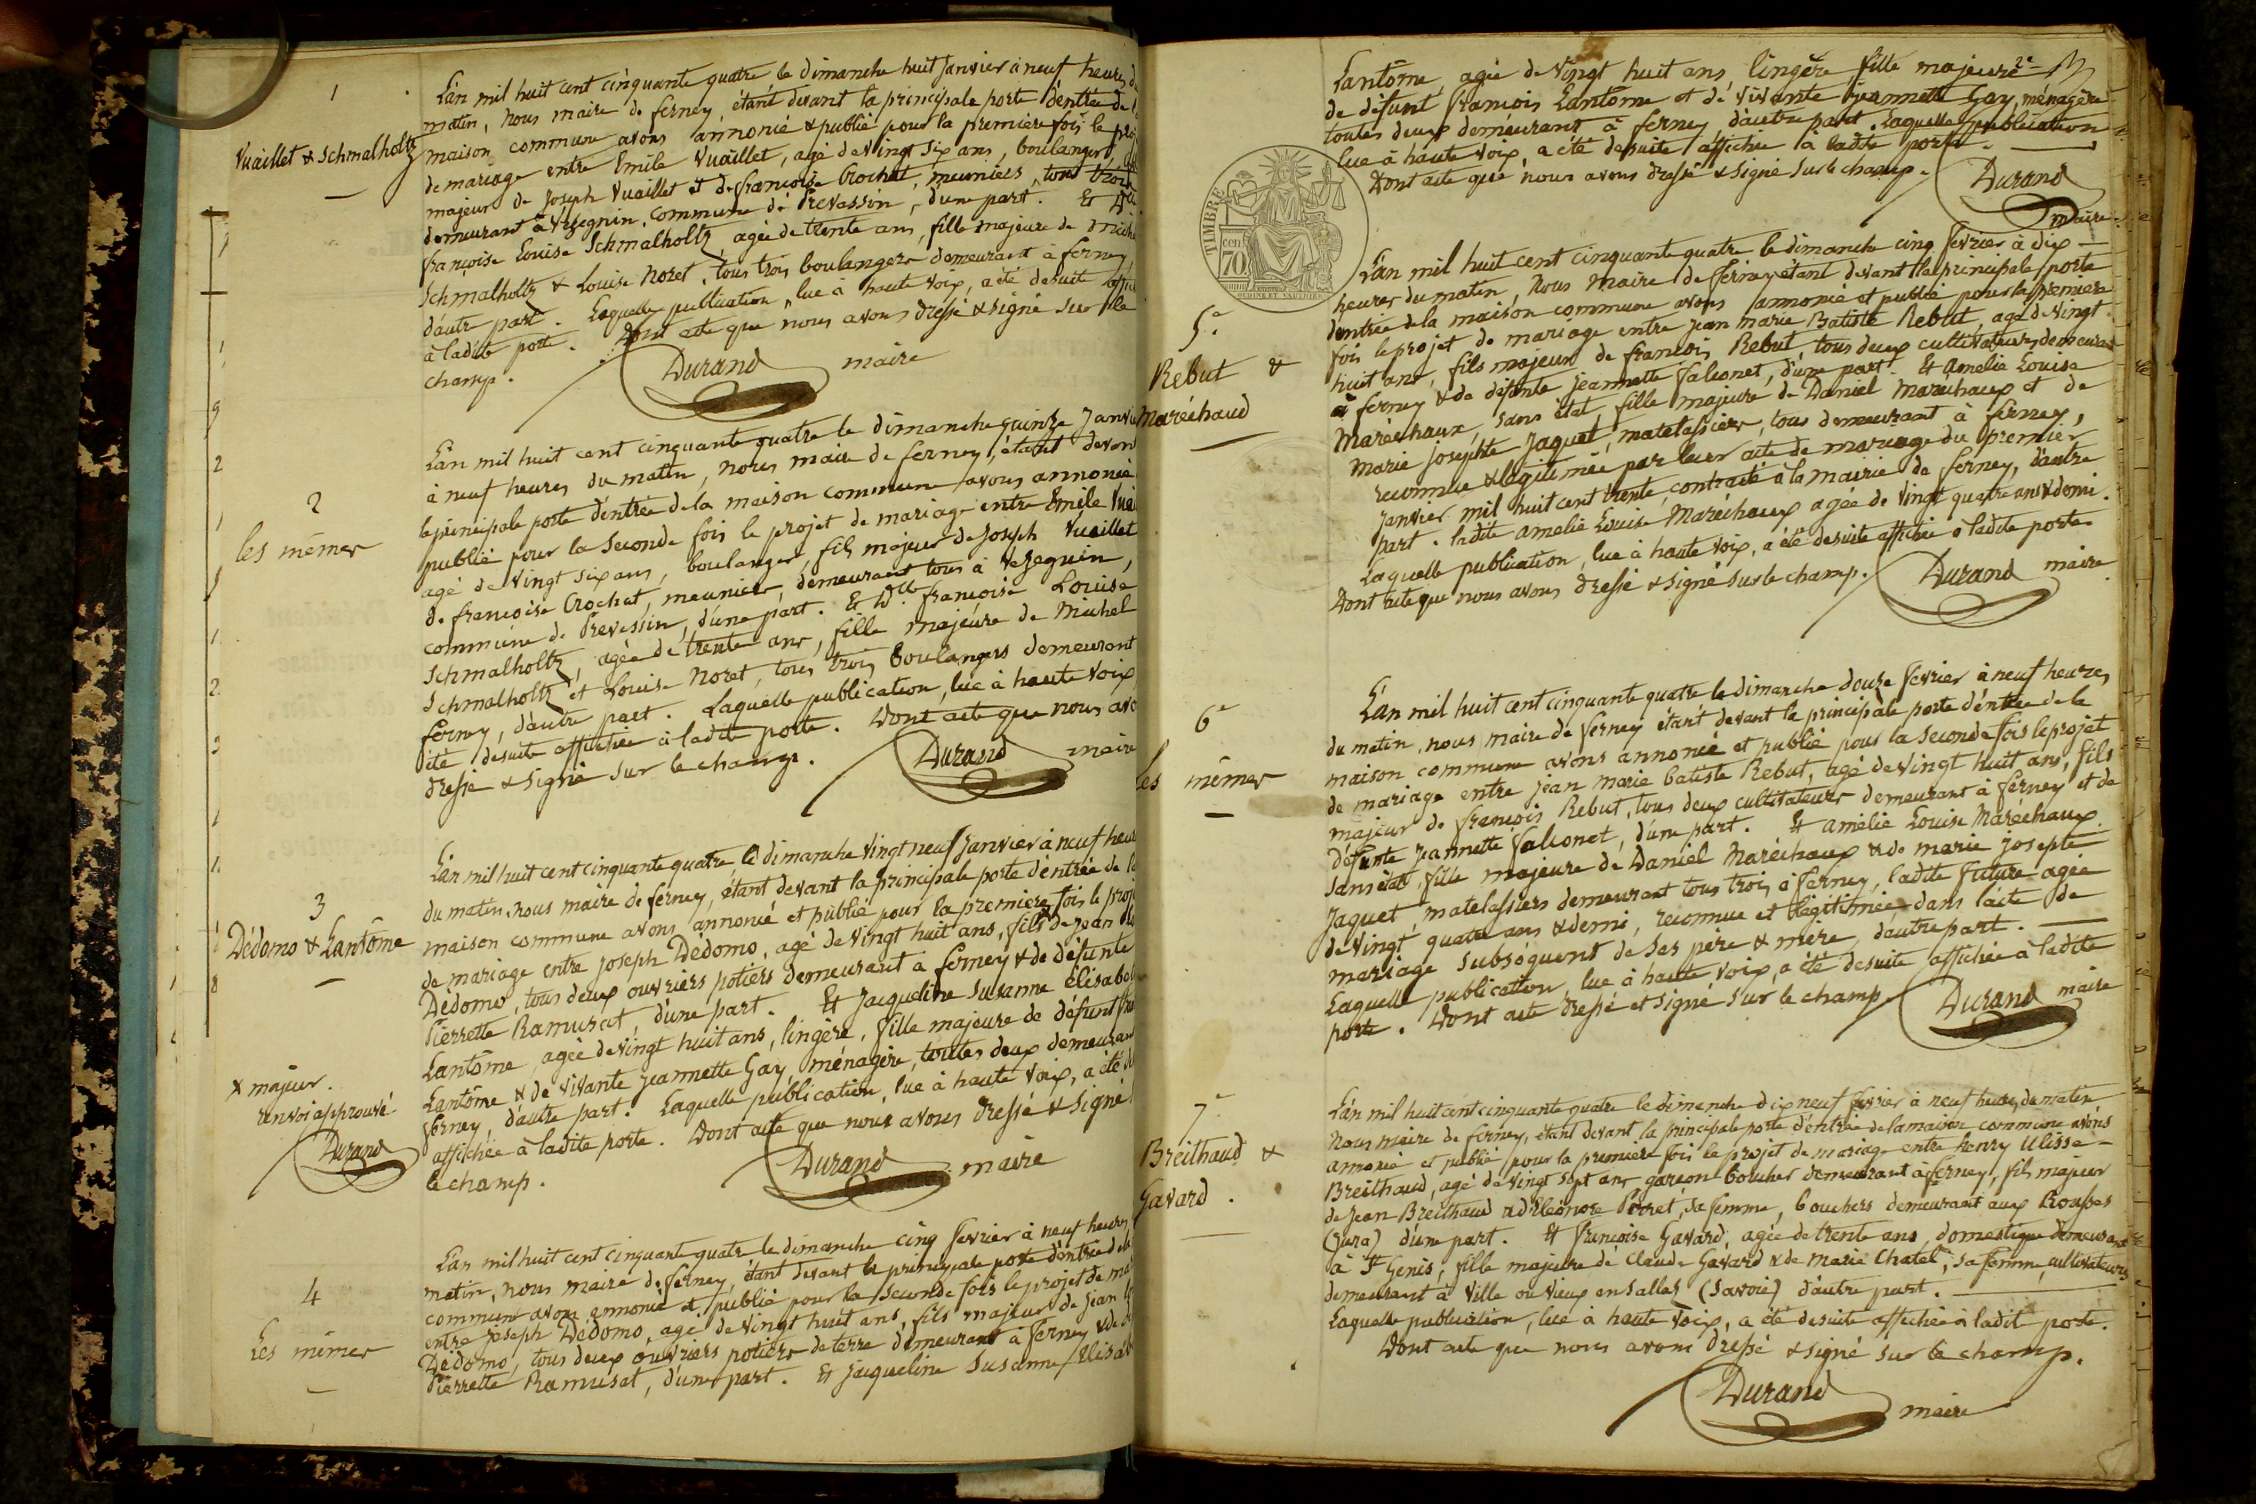 1
Vuaillet & Schmalholtz
L'an mil huit cent cinquante quatre le dimanche huit Janvier à neuf heures d
matin, nous maire de ferney, étant devant la principale porte d'entrée de l
maison commune avons annoncé & publié pour la première fois le proj
de mariage entre Emile Vuaillet, agé de Vingt Six ans, boulanger,
majeur de Joseph Vuaillet et de françoise Crochat, meuniers, tous trois
demeurant à Vezegnin, commune de Prevessin, d'une part. Et Dlle
françoise Louise Schmalholtz, agée de trente ans, fille majeure de Michel
Schmalholtz & Louise Noret, tous trois boulangers demeurant à ferney,
d'autre part. Laquelle publication, lue à haute voix, a été desuite affic
à ladite porte. Dont acte que nous avons dressé & signé sur le
champ.
Durand maire
2
les mêmes
L'an mil huit cent cinquante quatre le dimanche quinze Janvie
à neuf heures du matin, nous maire de ferney, étant devan
la principale porte d'entrée de la maison commune avons annoncé
publié pour la Seconde fois le projet de mariage entre Emile Vuai
agé de Vingt Six ans, boulanger, fils majeur de Joseph Vuaillet
de françoise Crochat, meunier, demeurant tous à Vezegnin,
commune de Prevessin, d'une part. Et Dlle françoise Louise
Schmalholtz, agée de trente ans, fille majeure de Michel
Schmalholtz et Louise Noret, tous trois boulangers demeurant
ferney, d'autre part. Laquelle publication, lue à haute voix,
été desuite affichée à ladite porte. Dont acte que nous avo
dressé & signé sur le champ.
Durand maire
3
Dédomo & Lantôme
L'an mil huit cent cinquante quatre, le dimanche Vingt neuf Janvier à neuf heur
du matin, nous maire de ferney, étant devant la principale porte d'entrée de la
maison commune avons annoncé et publié pour la première fois le proj
de mariage entre Joseph Dédomo, agé de Vingt huit ans, fils x de Jean
Dédomo, tous deux ouvriers potiers demeurant à ferney & de défunte
Pierrette Ramusat, d'une part. Et Jacqueline Susanne Elisabe
Lantôme, agée de Vingt huit ans, lingère, fille majeure de défunt fra
Lantôme & de Vivante Jeannette Gay, ménagère, toutes deux demeuran
ferney, d'autre part. Laquelle publication, lue à haute voix, a été de
affichée à ladite porte. Dont acte que nous avons dressé & signé
le champ.
Durand maire
x majeur.
renvoi approuvé
Durand
4
Les mêmes
L'an mil huit cent cinquante quatre le dimanche cinq fevrier à neuf heures
matin, nous maire de ferney, étant devant la principale porte d'entrée de la
commune avons annoncé et publié pour la Seconde fois le projet de ma
entre Joseph Dédomo, agé de Vingt huit ans, fils majeur de Jean
Dédomo, tous deux ouvriers potiers de terre demeurant à ferney & de
Pierrette Ramusat, d'une part. Et Jacqueline Susanne Elisab
Lantôme, agée de Vingt huit ans, lingère fille majeure
de défunt francois Lantôme et de Vivante Jeannette Gay, ménagère
toutes deux demeurant à ferney d'autre part. Laquelle publication
lue à haute voix, a été desuite affichée à ladite porte.
Dont acte que nous avons dressé & signé sur le champ.
Durand
maire
TIMBRE
70
5e
Rebut &
Maréchaud
L'an mil huit cent cinquante quatre le dimanche cinq fevrier à dix
heures du matin, Nous Maire de ferney étant devant la principale porte
d'entrée de la maison commune avons annoncé et publié pour la premiere
fois le projet de mariage entre Jean Marie Batiste Rebut, agé de Vingt
huit ans, fils majeur de francois Rebut, tous deux cultivateurs demeurant
à ferney & de défunte Jeannette Falconet, d'une part. Et Amelie Louise
Maréchaux, sans état, fille majeure de Daniel Marechaux et de
Marie Josephte Jaquet, matelassiers, tous demeurant à ferney,
reconnue & légitimée par leur acte de mariage du premier
Janvier mil huit cent trente, contracté à la mairie de ferney, d'autre
part. ladite amelie Louise Maréchaux agée de Vingt quatre ans & demi.
Laquelle publication, lue à haute voix, a été desuite affichée à ladite porte
Dont acte que nous avons dressé & signé sur le champ.
Durand maire
6e
Les mêmes
L'an mil huit cent cinquante quatre le dimanche douze fevrier à neuf heures
du matin, nous maire de ferney étant devant la principale porte d'entrée de la
maison commune avons annoncé et publié pour la Seconde fois le projet
de mariage entre Jean Marie batiste Rebut, agé de Vingt huit ans, fils
majeur de françois Rebut, tous deux cultivateurs demeurant à ferney et de
défunte Jeannette Falconet, d'une part. Et amélie Louise Maréchaux
Sans état, fille majeure de Daniel Maréchaux & de marie josepte
Jaquet, matelassiers demeurant tous trois à ferney, ladite future agée
de Vingt quatre ans & demi, reconnue et légitimée dans l'acte de
mariage subséquent de ses père & mère, d'autre part.
Laquelle publication, lue à haute voix, a été desuite affichée à ladite
porte. Dont acte dressé et signé sur le champ
Durand maire
7e
Breithaud &
Gavard.
L'an mil huit cent cinquante quatre le dimanche dix neuf fevrier à neuf heures du matin
Nous maire de ferney, étant devant la principale porte d'entrée de la maison commune avons
annoncé et publié pour la premiere fois le projet de mariage entre henry Ulisse
Breithaud, agé de Vingt sept ans garçon boucher demeurant à ferney, fils majeur
de Jean Breithaud & d'Eléonore Perret, sa femme, bouchers demeurant aux Rousses
(Jura) d'une part. Et françoise Gavard, agée de trente ans, domestique demeurant
à St Genis, fille majeure de Claude Gavard & de Marie Chatel, sa femme, cultivateurs
demeurant à Ville ou Vieux en Sallaz (Savoie) d'autre part.
Laquelle publication, lue à haute voix, a été desuite affichée à ladite porte.
Dont acte que nous avons dressé & signé sur le champ.
Durand
maire